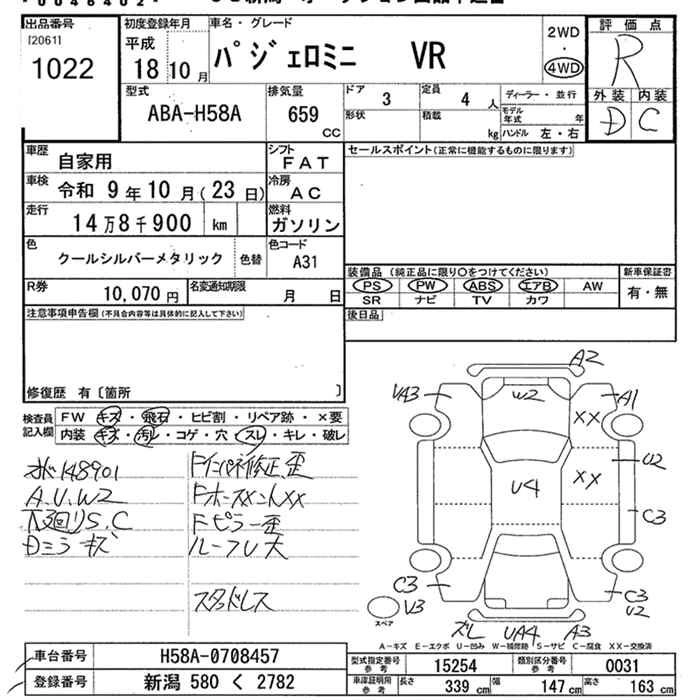 出品番号
[2061]
1022
初度登録年月
平成
18 10月
車名・グレード
パジェロミニ VR
2WD
・
4WD
評価点
R
外装 内装
D C
型式
ABA-H58A
排気量
659 CC
ドア 3
形状
定員 4 人
積載 kg
ディーラー・並行
モデル年式 年
ハンドル 左・右
車歴 自家用
シフト FAT
セールスポイント(正常に機能するものに限ります)
車検 令和 9年10月(23日)
冷房 AC
走行 14万8千900 km
燃料 ガソリン
色 クールシルバーメタリック 色替
色コード A31
R券 10,070円
名変通知期限 月 日
装備品 (純正品に限り○をつけてください)
PS PW ABS エアB AW
SR ナビ TV カワ
新車保証書
有・無
後日品
注意事項申告欄(不具合内容等は具体的に記入して下さい)
修復歴 有〔箇所 〕
検査員記入欄
FW キズ・飛石・ヒビ割・リペア跡・×要
内装 キズ・汚レ・コゲ・穴・スレ・キレ・破レ
148901
A.U.W2
下廻りS.C
Dミラーキズ
Fインパネ修正歪
Fピラー歪
ルーフU大
スタッドレス
A2
VA3
W2
A1
XX
U2
XX
U4
C3
C3
V3
スペア
C3
U2
ズレ UA4 A3
A-キズ E-エクボ U-凹み W-補修跡 S-サビ C-腐食 XX-交換済
車台番号 H58A-0708457
登録番号 新潟 580 く 2782
型式指定番号参考 15254
類別区分番号参考 0031
車庫証明用参考 長さ 339 cm 幅 147 cm 高さ 163 cm